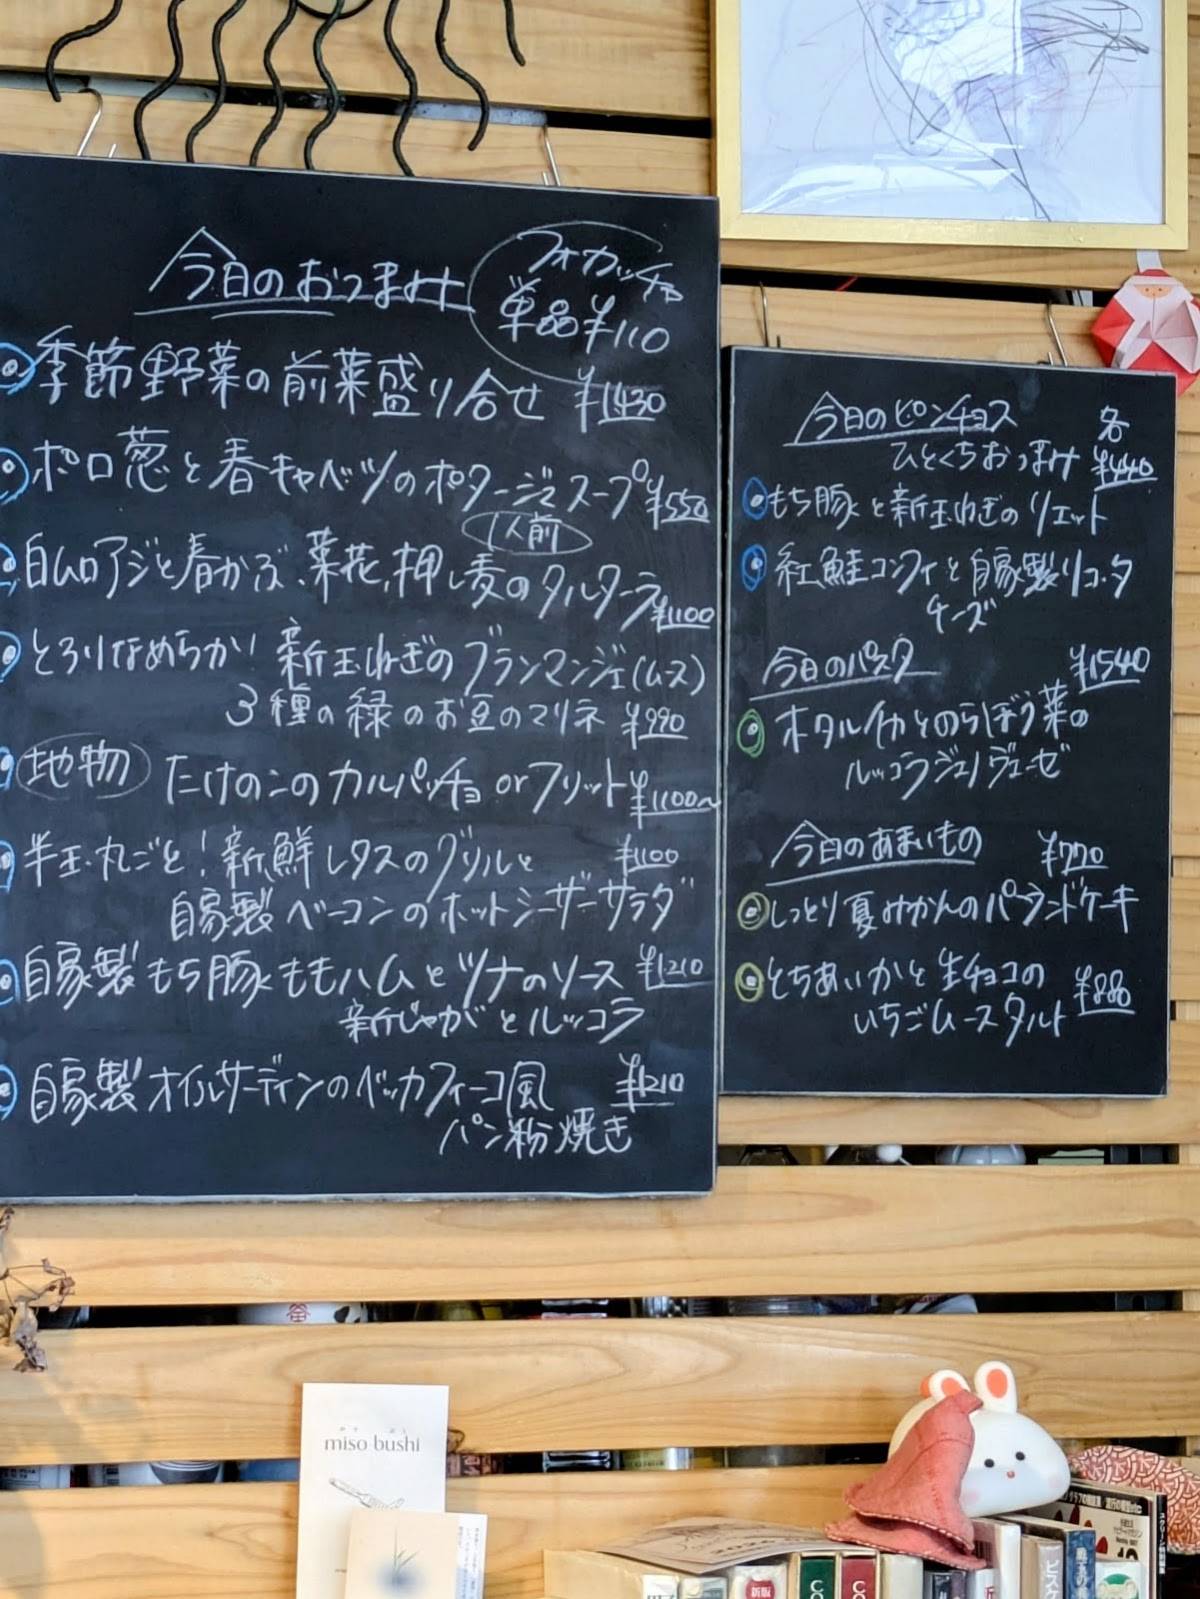 今日のおつまみ
フォカッチャ
単品¥110
季節野菜の前菜盛り合せ ¥1430
ポロ葱と春キャベツのポタージュスープ ¥550
1人前
白ムロアジと春かぶ、菜花、押し麦のタルターラ ¥1100
とろりなめらかい 新玉ねぎのブランマンジェ(ムース)
3種の緑のお豆のマリネ ¥990
地物 たけのこのカルパッチョ or フリット ¥1100〜
半玉丸ごと！新鮮レタスのグリルと ¥1100
自家製ベーコンのホットシーザーサラダ
自家製もち豚ももハムとツナのソース ¥1210
新じゃがとルッコラ
自家製オイルサーディンのベッカフィーコ風 ¥1210
パン粉焼き
今日のピンチョス 各
ひとくちおつまみ ¥440
もち豚と新玉ねぎのリエット
紅鮭コンフィと自家製リコッタ
チーズ
今日のパスタ ¥1540
ホタルイカとのらぼう菜の
ルッコラジェノヴェーゼ
今日のあまいもの ¥770
しっとり夏みかんのパウンドケーキ
とちあいかと生チョコの ¥880
いちごムースタルト
miso bushi
新版